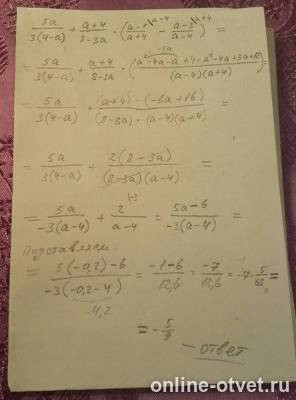 5a/3(4-a) + a+4/8-3a · (a-1/a+4 |a-4 - a-3/a-4 |a+4) =
= 5a/3(4-a) + a+4/8-3a · (a²-4a-a+4-a²-4a+3a+12/(a-4)(a+4)) =
= 5a/3(4-a) + (a+4)·(-6a+16)/(8-3a)·(a-4)(a+4) =
= 5a/3(4-a) + 2(8-3a)/(8-3a)(a-4) =
= 5a/-3(a-4) + 2/a-4 |-3 = 5a-6/-3(a-4) =
Подставляем
= 5(-0,2)-6/-3(-0,2-4) = -1-6/12,6 = -7/12,6 = -7·5/63 =
-4,2
= -5/9
- ответ
online-otvet.ru